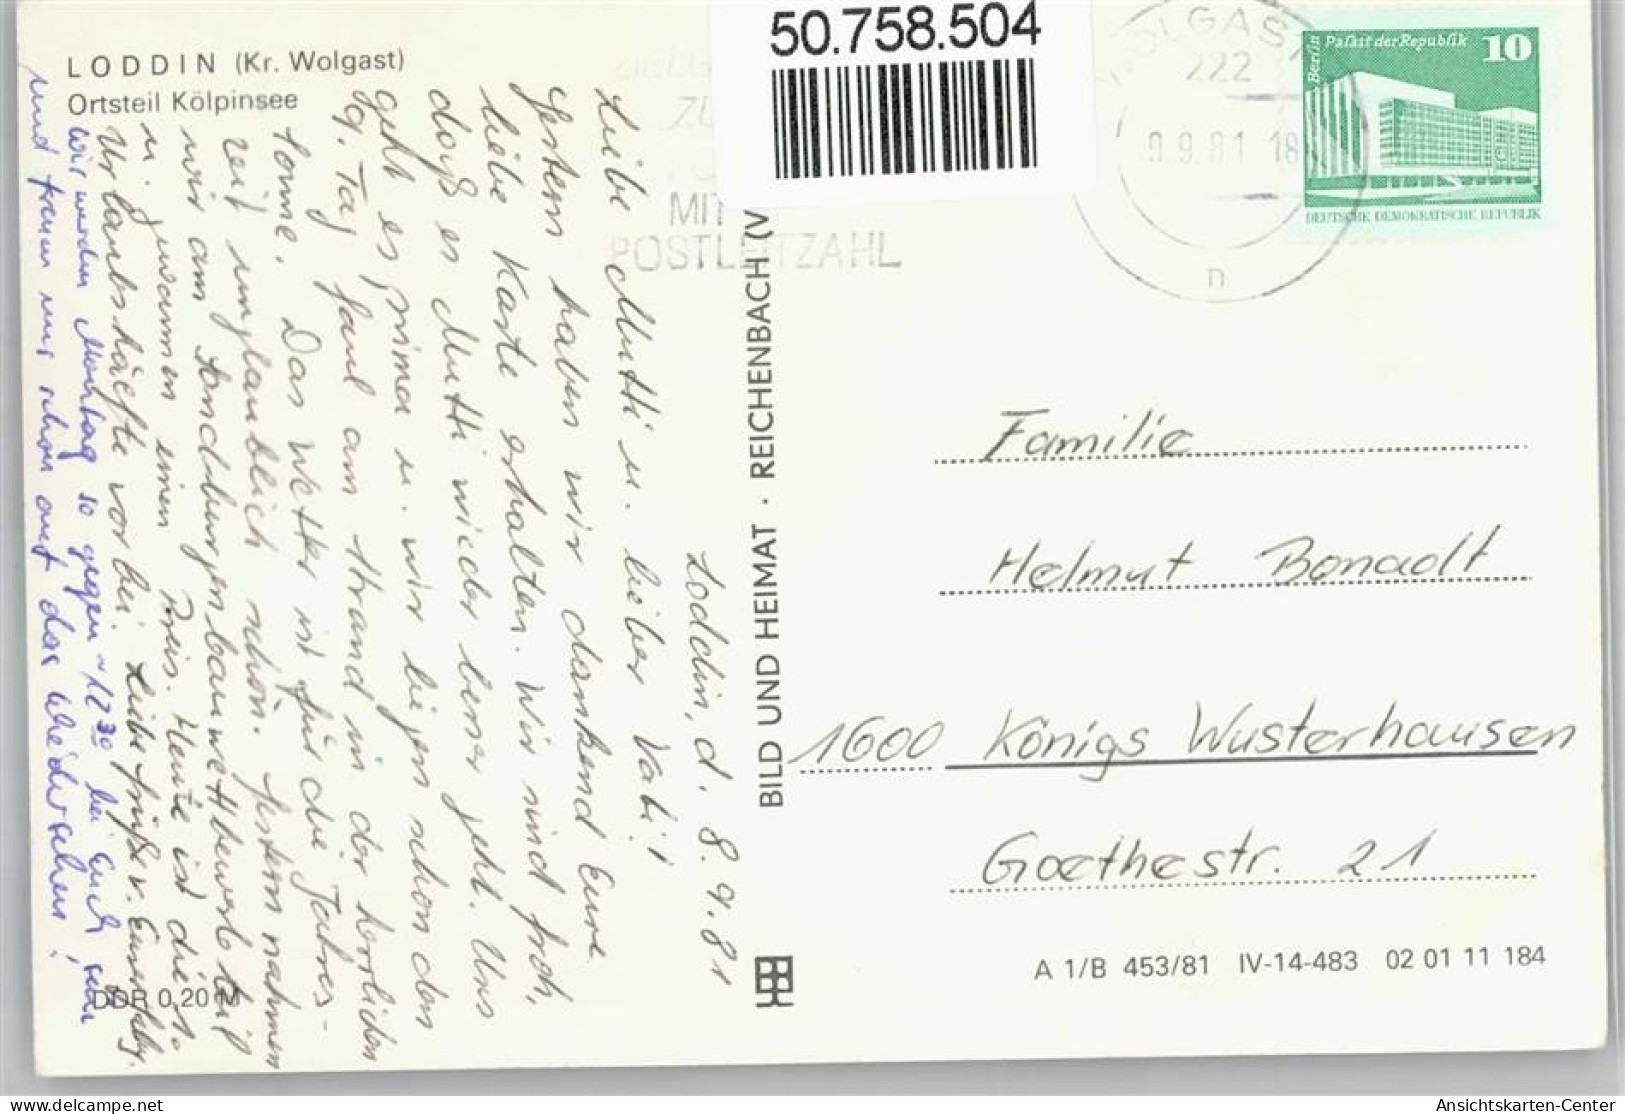 LODDIN (Kr. Wolgast)
Ortsteil Kölpinsee
50.758.504
WOLGAST
222
9.9.81 18
n
MIT
POSTLEITZAHL
Berlin
Palast der Republik
10
DEUTSCHE DEMOKRATISCHE REPUBLIK
Loddin, d. 8.9.81
Liebe Mutti u. lieber Vati!
Gestern haben wir dankend Eure
liebe Karte erhalten. Wir sind froh,
daß es Mutti wieder besser geht. Uns
geht es prima u. wir liegen schon den
9. Tag faul am Strand in der herrlichen
Sonne. Das Wetter ist für die Jahres-
zeit unglaublich schön. Gestern nahmen
wir am Sandburgenbauwettbewerb teil
u. gewannen einen Preis. Heute ist die 1.
Urlaubshälfte vorbei. Liebe Grüße v. Euren
wir werden Montag so gegen ~ 12 30 bei Euch sein
und freun uns schon auf das Wiedersehen!
DDR 0,20 M
BILD UND HEIMAT · REICHENBACH (V
Familie
Helmut Bonadt
1600 Königs Wusterhausen
Goethestr. 21
A 1/B 453/81 IV-14-483 02 01 11 184
delcampe.net
Ansichtskarten-Center